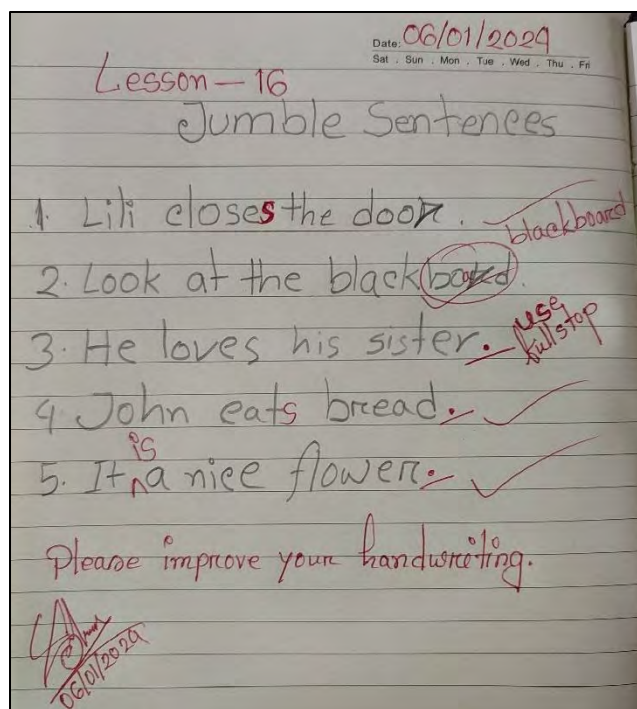 Date: 06/01/2024
Sat . Sun . Mon . Tue . Wed . Thu . Fri
Lesson - 16
Jumble Sentences
1. Lili closes the door.
blackboard
2. Look at the black
3. He loves his sister. use fullstop
4 John eats bread.
5. It is a nice flower.
Please improve your handwriting.
06/01/2024